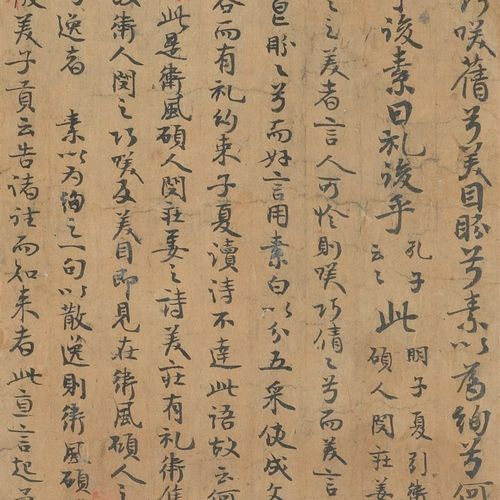 巧咲兮美目盼兮素以為絢兮何
後素曰礼後乎
孔子
云々
此
明子夏引衛
碩人閔莊姜
之美者言人可怜則咲巧倩々兮而美言
皃盼々兮而好言用素白以分五采使成文
容而有礼約束子夏讀詩不達此語故云何
此是衛風碩人閔莊姜之詩美莊有礼衛侯
故衛人閔之巧咲及美目即見在衛風碩人之
逸者 素以為絢之一句以散逸則衛風碩
美子貢云告諸往而知来者此直言起